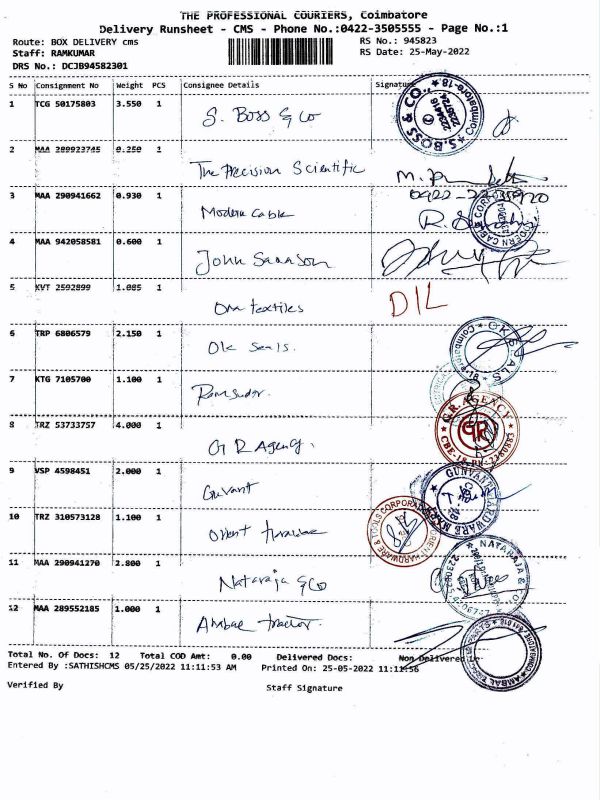 THE PROFESSIONAL COURIERS, Coimbatore
Delivery Runsheet - CMS - Phone No.:0422-3505555 - Page No.:1
Route: BOX DELIVERY cms RS No.: 945823
Staff: RAMKUMAR RS Date: 25-May-2022
DRS No.: DCJB94582301
S No Consignment No Weight PCS Consignee Details Signature
1 TCG 50175803 3.550 1
S. Boss & Co
S. BOSS & CO. Coimbatore-18
2 MAA 289923745 0.250 1
The Precision Scientific
3 MAA 290941662 0.930 1
Modern Cable
MODERN CABLE CORPORATION
4 MAA 942058581 0.600 1
John Samson
5 KVT 2592899 1.085 1
Om textiles
D/L
6 TRP 6806579 2.150 1
Ok Seals.
OK SEALS Coimbatore-18
7 KTG 7105700 1.100 1
Ramsudar.
8 TRZ 53733757 4.000 1
G R Agency.
G.R. AGENCY
GR
CBE-18. PH: 2380883
9 VSP 4598451 2.000 1
Guvant
GUNVANT HARDWARE MART
10 TRZ 310573128 1.100 1
Orient
ORIENT HARDWARE & TOOLS CORPORATION
11 MAA 290941270 2.800 1
Nataraja & Co
NATARAJA & CO.
12 MAA 289552185 1.000 1
Ambal tractor.
COIMBATORE 641018
Total No. Of Docs: 12 Total COD Amt: 0.00 Delivered Docs: Non Delivered
Entered By :SATHISHCMS 05/25/2022 11:11:53 AM Printed On: 25-05-2022 11:11:56
Verified By Staff Signature